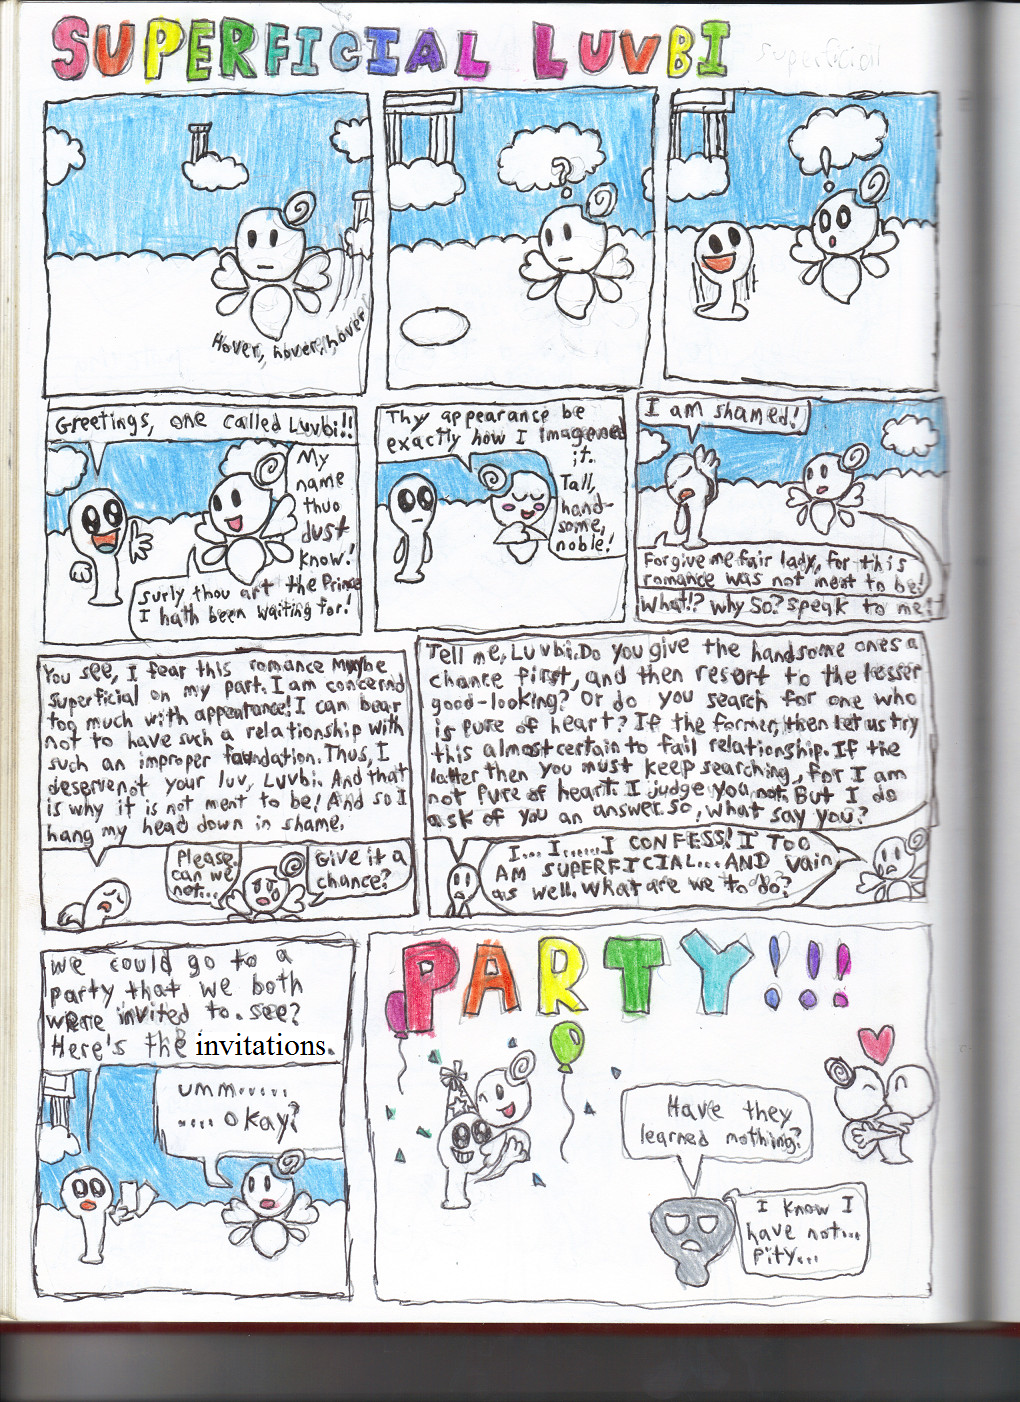 SUPERFICIAL LUVBI
superficial
Hover, hover, hover
Greetings, one called Luvbi!!
My
name
thuo
dust
know!
surly thou art the Prince
I hath been waiting for!
Thy appearance be
exactly how I imagened
it.
Tall,
hand-
some,
noble!
I am shamed!
Forgive me fair lady, for this
romance was not meat to be!
What!? why so? speak to me!
You see, I fear this romance maybe
superficial on my part. I am concernd
too much with appearance! I can bear
not to have such a relationship with
such an improper foundation. Thus, I
deservenot your luv, Luvbi. And that
is why it is not ment to be! And so I
hang my head down in shame.
Please.
can we
not...
Give it a
chance?
Tell me, Luvbi. Do you give the handsome ones a
chance first, and then resort to the lesser
good-looking? Or do you search for one who
is pure of heart? If the former, then let us try
this almost certain to fail relationship. If the
latter then you must keep searching, for I am
not pure of heart. I judge you not. But I do
ask of you an answer. So, what say you?
I... I...... I CONFESS! I TOO
AM SUPERFICIAL... AND vain
as well. What are we to do?
we could go to a
party that we both
were invited to. see?
Here's the invitations.
umm......
.... okay?
PARTY!!!
Have they
learned nothing?
I know I
have not...
Pity...